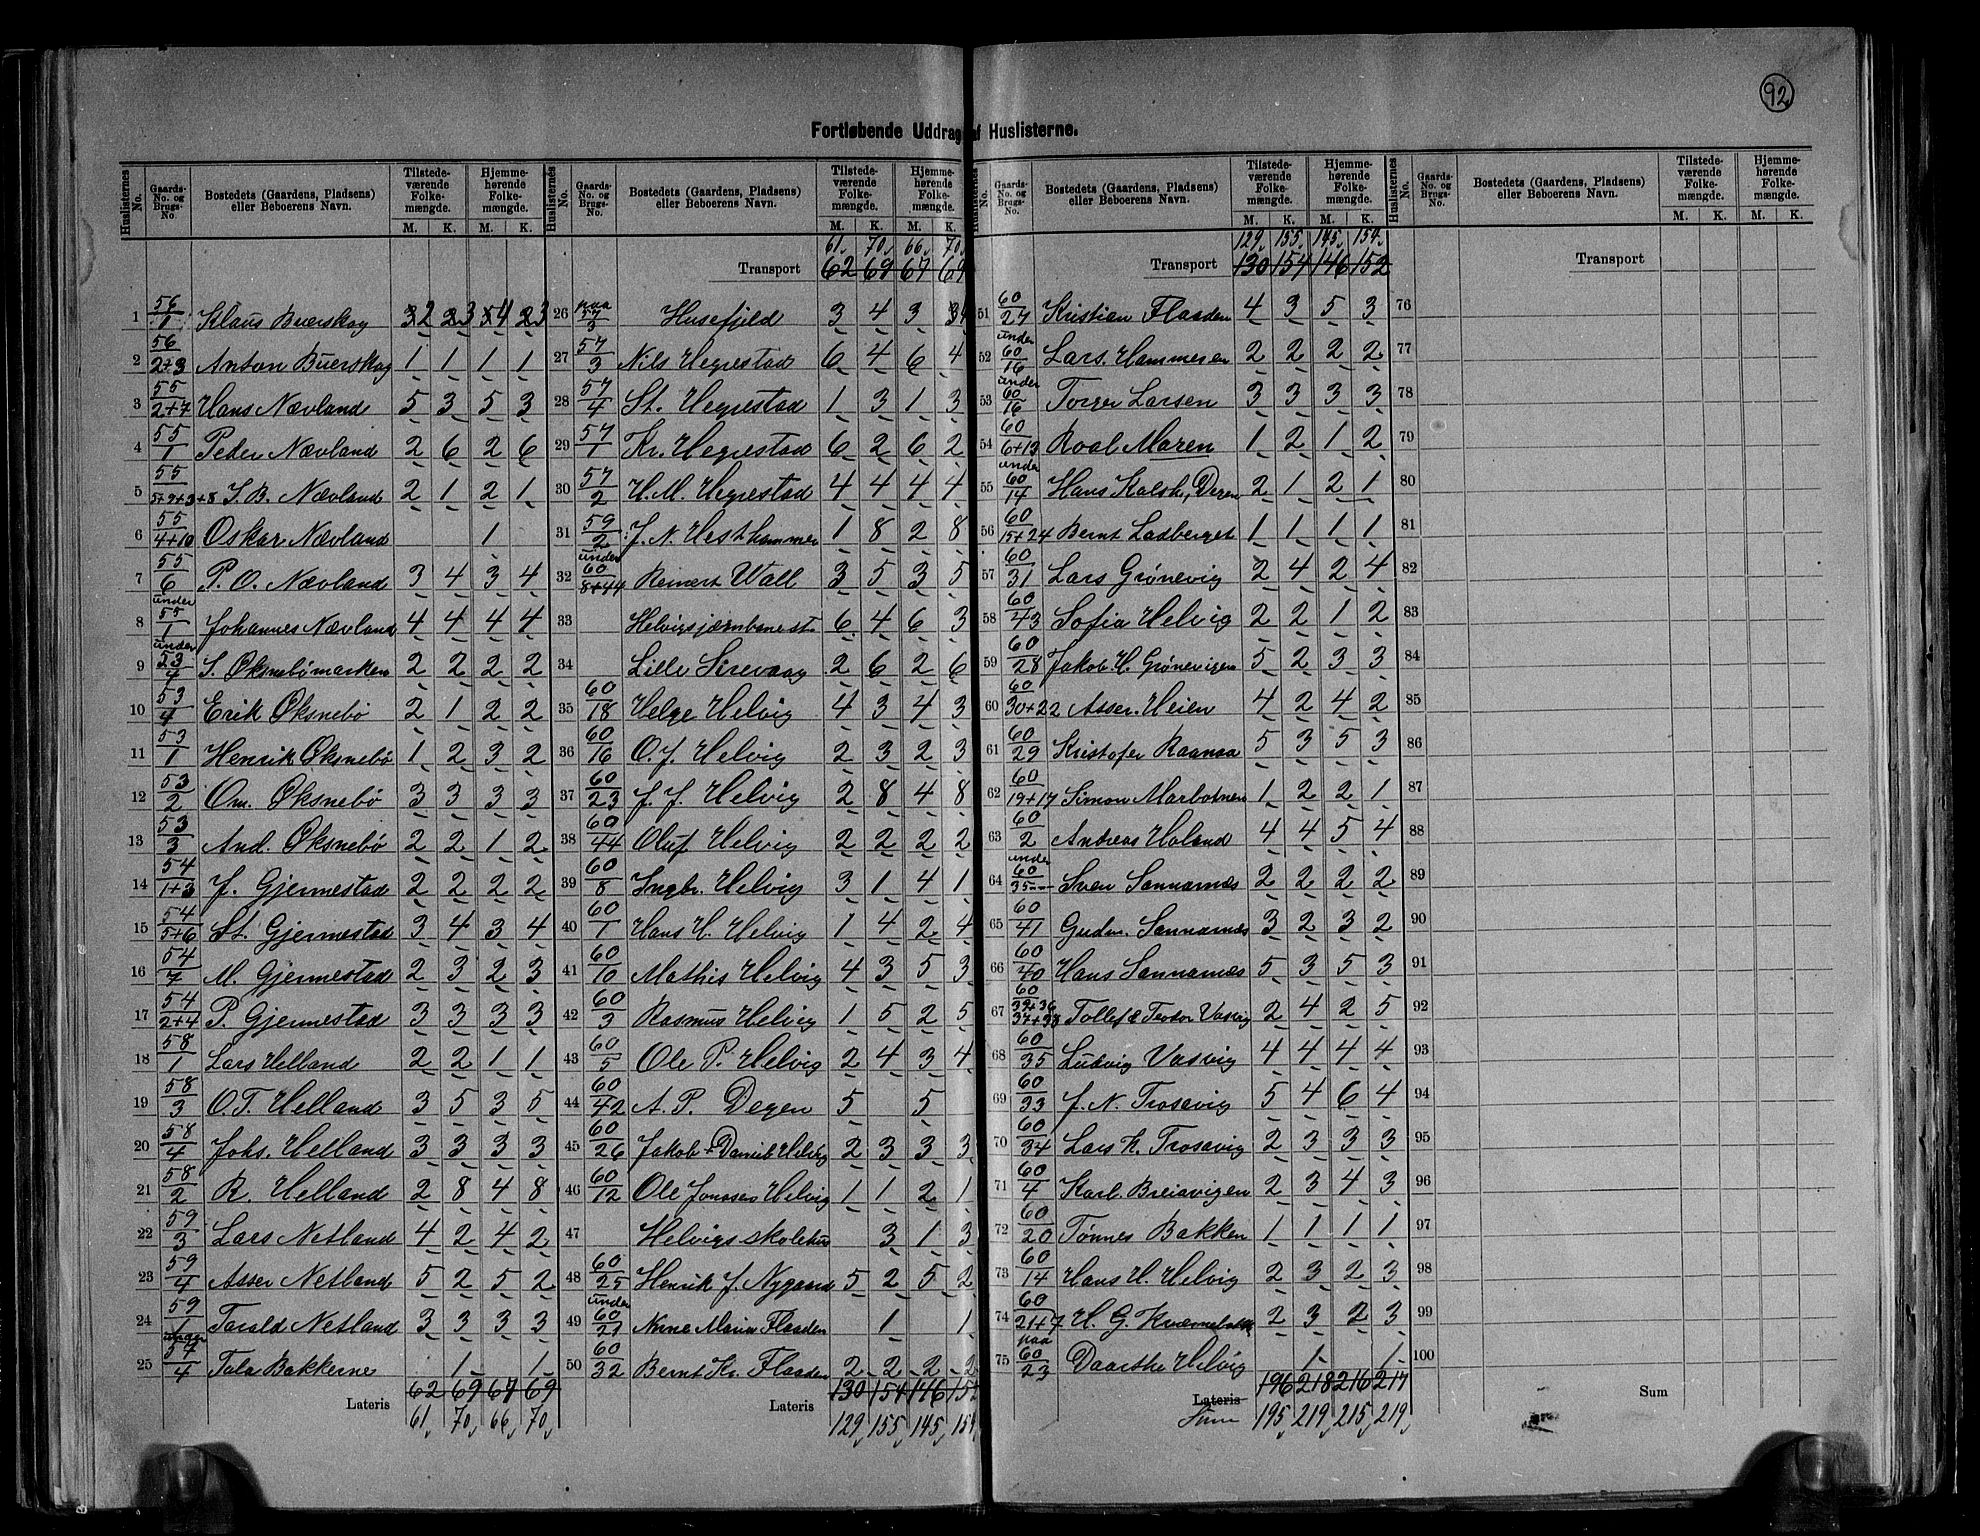 92
Fortløbende Uddrag af Huslisterne.
Huslisternes No. | Gaards-No. og Brugs-No. | Bostedets (Gaardens, Pladsens) eller Beboerens Navn. | Tilstede-værende Folke-mængde. M. K. | Hjemme-hørende Folke-mængde. M. K.
1 56/1 Klaus Buerskog 2 3 4 3
2 56/2+3 Anton Buerskog 1 1 1 1
3 55/2+7 Hans Nævland 5 3 5 3
4 55/1 Peder Nævland 2 6 2 6
5 55/5+9+3+8 S. B. Nævland 2 1 2 1
6 55/4+10 Oskar Nævland 1
7 55/6 P. O. Nævland 3 4 3 4
8 under 55/1 Johannes Nævland 4 4 4 4
9 under 53/4 S. Øksnebømarken 2 2 2 2
10 53/4 Erik Øksnebø 2 1 2 2
11 53/1 Henrik Øksnebø 1 2 3 2
12 53/2 Om. Øksnebø 3 3 3 3
13 53/3 And. Øksnebø 2 2 1 2
14 54/1+3 J. Gjermestad 2 2 2 2
15 54/5+6 St. Gjermestad 3 4 3 4
16 54/7 M. Gjermestad 2 3 2 3
17 54/2+4 P. Gjermestad 3 3 3 3
18 58/1 Lars Helland 2 2 1 1
19 58/3 O. T. Helland 3 5 3 5
20 58/4 Johs. Helland 3 3 3 3
21 58/2 R. Helland 2 8 4 8
22 59/3 Lars Netland 4 2 4 2
23 59/4 Asser Netland 5 2 5 2
24 59/1 Torald Netland 3 3 3 3
25 under 54/4 Tala Bakkerne 1 1
Lateris 62 69 67 69
61, 70, 66, 70,
Huslisternes No. | Gaards-No. og Brugs-No. | Bostedets (Gaardens, Pladsens) eller Beboerens Navn. | Tilstede-værende Folke-mængde. M. K. | Hjemme-hørende Folke-mængde. M. K.
61, 70, 66, 70,
Transport 62 69 67 69
26 paa 57/3 Husefjeld 3 4 3 4
27 57/3 Nils Hegrestad 6 4 6 4
28 57/4 St. Hegrestad 1 3 1 3
29 57/1 Kr. Hegrestad 6 2 6 2
30 57/2 H. M. Hegrestad 4 4 4 4
31 59/2 J. N. Hesthammer 1 8 2 8
32 under 60/8+44 Reinert Wall 3 5 3 5
33 Helvigsjærnbanest. 6 4 6 3
34 Lille Sirevaag 2 6 2 6
35 60/18 Helge Helvig 4 3 4 3
36 60/16 O. J. Helvig 2 3 2 3
37 60/23 J. J. Helvig 2 8 4 8
38 60/44 Oluf Helvig 2 2 2 2
39 60/8 Ingbr. Helvig 3 1 4 1
40 60/1 Hans H. Helvig 1 4 2 4
41 60/10 Mathis Helvig 4 3 5 3
42 60/3 Rasmus Helvig 1 5 2 5
43 60/5 Ole P. Helvig 2 4 3 4
44 60/42 A. P. Degen 5 5
45 60/26 Jakob + Daniel Helvig 2 3 3 3
46 60/12 Ole Jonassen Helvig 1 1 2 1
47 Helvigs skolehus 3 1 3
48 60/25 Henrik J. Nygaard 5 2 5 2
49 under 60/21 Anne Maria Flaaden 1 1
50 60/32 Bernt Kr. Flaaden 2 2 2 2
Lateris 130 154 146 152
129, 155, 145, 154,
Huslisternes No. | Gaards-No. og Brugs-No. | Bostedets (Gaardens, Pladsens) eller Beboerens Navn. | Tilstede-værende Folke-mængde. M. K. | Hjemme-hørende Folke-mængde. M. K.
129, 155, 145, 154,
Transport 130 154 146 152
51 60/27 Kristian Flaaden 4 3 5 3
52 under 60/16 Lars. Hammeren 2 2 2 2
53 under 60/16 Torger Larsen 3 3 3 3
54 60/6+13 Roal Maren 1 2 1 2
55 under 60/14 Hans Kalsh, Degen 2 1 2 1
56 60/15+24 Bernt Ladberget 1 1 1 1
57 60/31 Lars Grønevig 2 4 2 4
58 60/43 Sofia Helvig 2 2 1 2
59 60/28 Jakob. H. Grønevigen 5 2 3 3
60 60/30+22 Asser. Heien 4 2 4 2
61 60/29 Kristofer Raanaa 5 3 5 3
62 60/19+17 Simon Marbotnen 1 2 2 1
63 60/2 Andreas Holand 4 4 5 4
64 under 60/35 Sven Sannarnes 2 2 2 2
65 60/41 Gudm. Sannarnes 3 2 3 2
66 60/40 Hans Sannarnes 5 3 5 3
67 60/39+36 37+38 Tollef & Teodor Vasvig 2 4 2 5
68 60/35 Ludvig Vasvig 4 4 4 4
69 60/33 J. N. Trosavig 5 4 6 4
70 60/34 Lars K. Trosavig 2 3 3 3
71 60/4 Karl. Breiavigen 2 3 4 3
72 60/20 Tønnes Bakken 1 1 1 1
73 60/14 Hans H. Helvig 2 3 2 3
74 60/21+7 H. G. 2 3 2 3
75 paa 60/23 Daarthe Helvig 1 1
Lateris 196 218 216 217
Sum 195, 219, 215, 219,
Huslisternes No. | Gaards-No. og Brugs-No. | Bostedets (Gaardens, Pladsens) eller Beboerens Navn. | Tilstede-værende Folke-mængde. M. K. | Hjemme-hørende Folke-mængde. M. K.
Transport
76
77
78
79
80
81
82
83
84
85
86
87
88
89
90
91
92
93
94
95
96
97
98
99
100
Sum